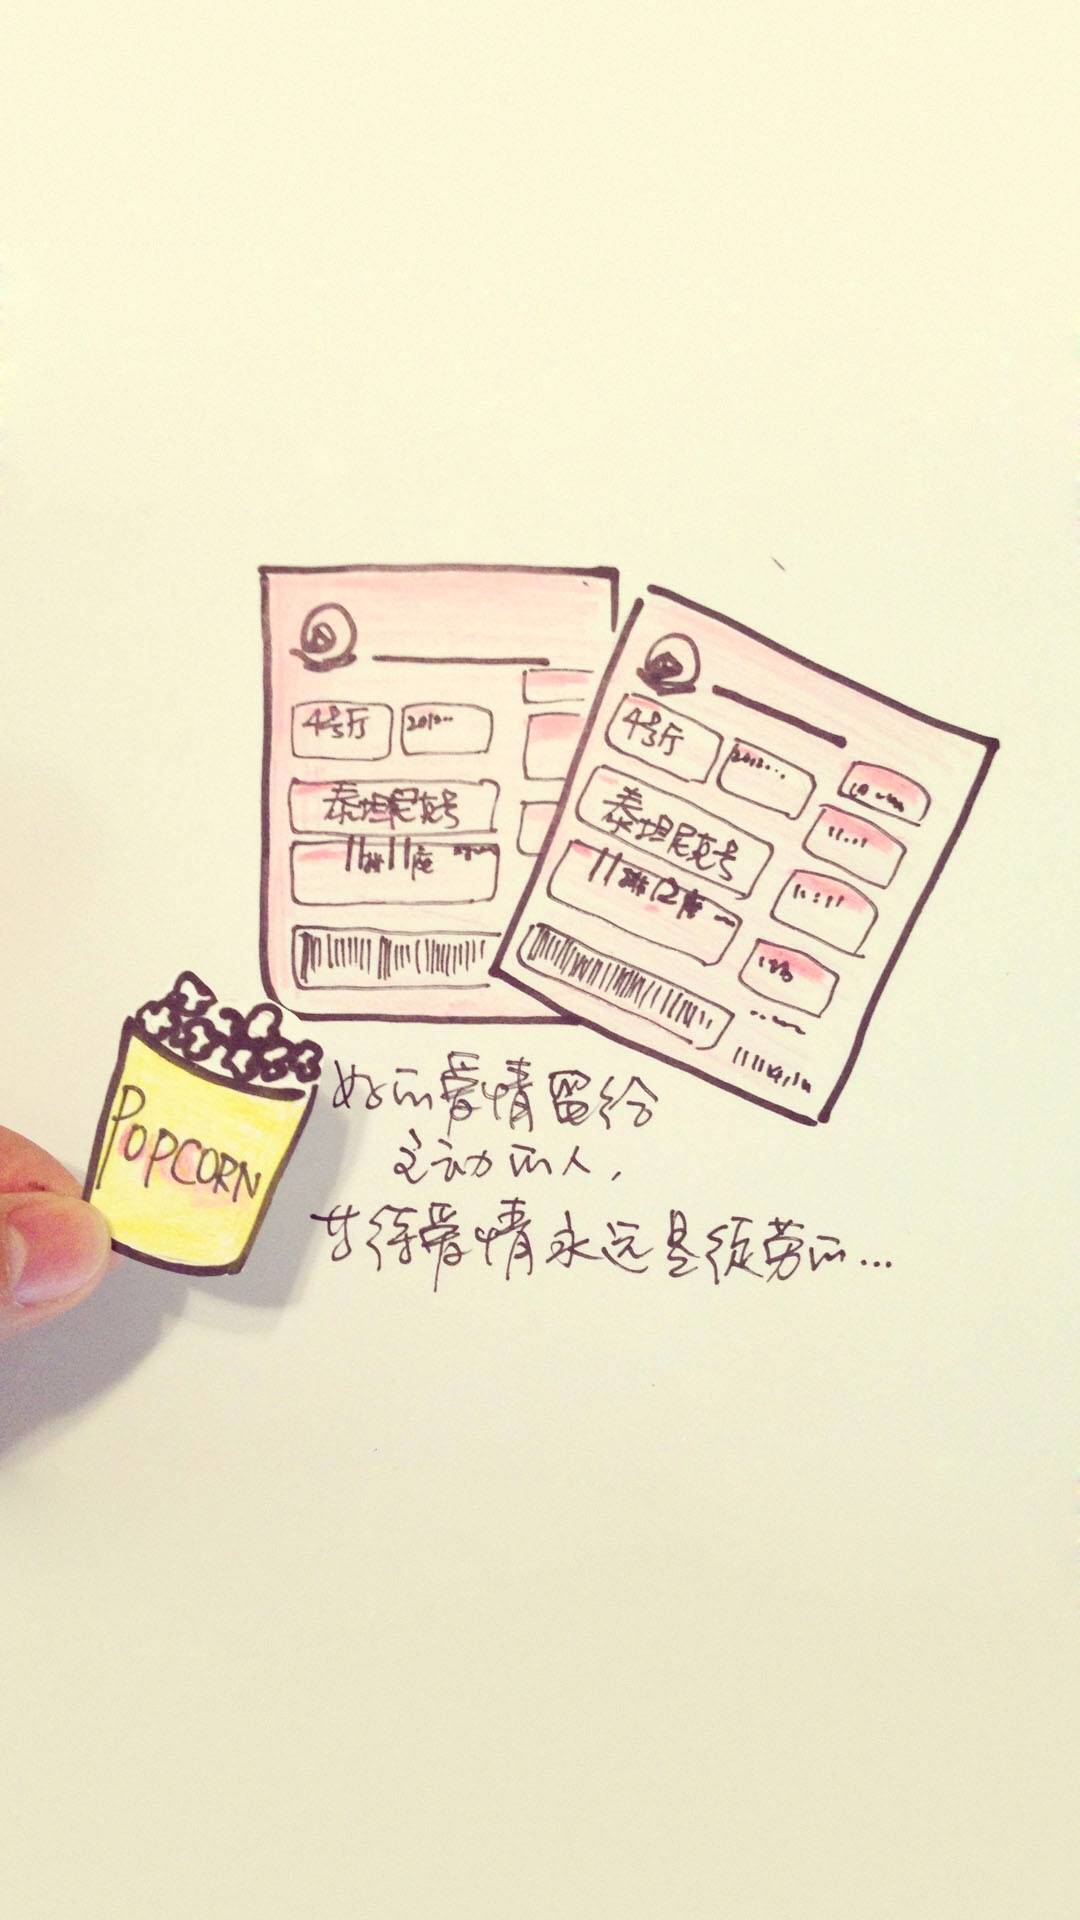 4号厅
2010...
泰坦尼克号
11排11座
4号厅
2010...
泰坦尼克号
11排12座
POPCORN
好的爱情留给
主动的人,
甘待爱情永远是徒劳的...